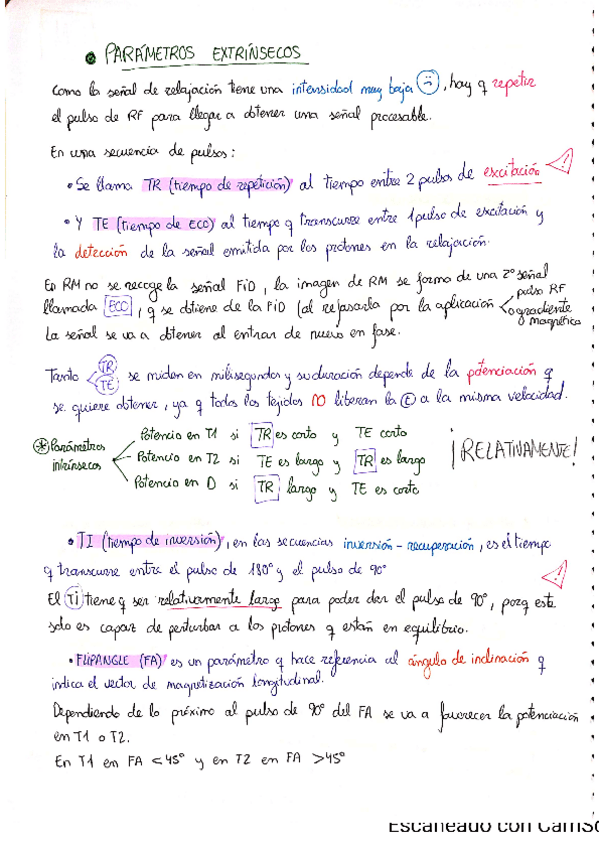 • PARÁMETROS EXTRÍNSECOS
Como la señal de relajación tiene una intensidad muy baja :(, hay q repetir
el pulso de RF para llegar a obtener una señal procesable.
En una secuencia de pulsos:
• Se llama TR (tiempo de repetición) al tiempo entre 2 pulsos de excitación !
• Y TE (tiempo de ECO) al tiempo q transcurre entre 1 pulso de excitación y
la detección de la señal emitida por los protones en la relajación.
En RM no se recoge la señal FiD, la imagen de RM se forma de una 2º señal
llamada ECO, q se obtiene de la FiD (al refasarla por la aplicación
pulso RF
o gradiente
magnético
La señal se va a obtener al entrar de nuevo en fase.
Tanto TR TE se miden en milisegundos y su duración depende de la potenciación q
se quiere obtener, ya q todos los tejidos NO liberan la E a la misma velocidad.
* Parámetros intrínsecos
Potencio en T1 si TR es corto y TE corto
Potencio en T2 si TE es largo y TR es largo
Potencio en D si TR largo y TE es corto
¡RELATIVAMENTE!
• TI (tiempo de inversión), en las secuencias inversión-recuperación, es el tiempo
q transcurre entre el pulso de 180º y el pulso de 90º !
El Ti tiene q ser relativamente largo para poder dar el pulso de 90º, porq este
solo es capaz de perturbar a los protones q están en equilibrio.
• FLIPANGLE (FA) es un parámetro q hace referencia al ángulo de inclinación q
indica el vector de magnetización longitudinal.
Dependiendo de lo próximo al pulso de 90º del FA se va a favorecer la potenciación
en T1 o T2.
En T1 en FA <45º y en T2 en FA >45º
Escaneado con CamSc